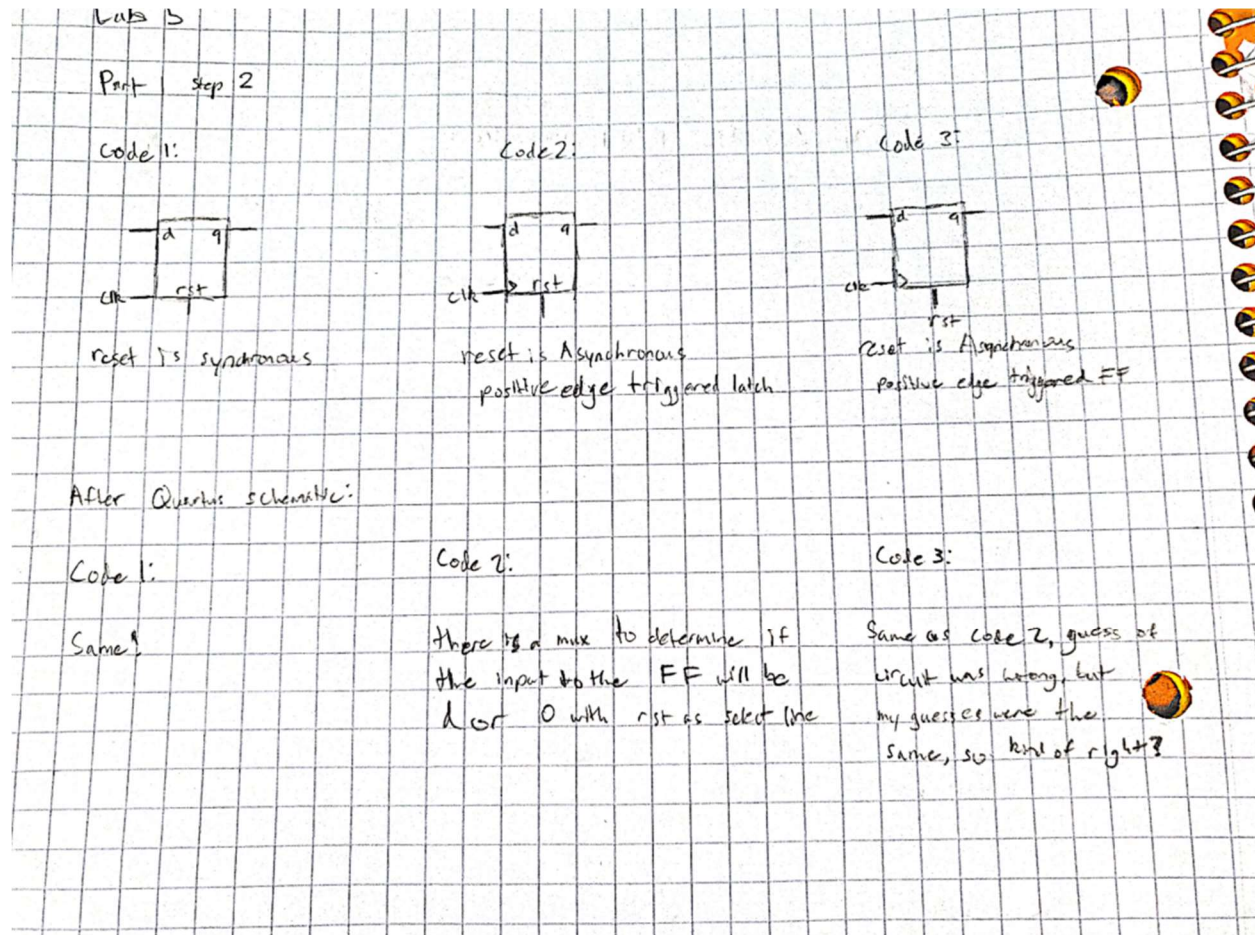 Lab 3
Part 1 step 2
Code 1:
Code 2:
Code 3:
d q
clk rst
d q
clk rst
d q
clk
rst
reset is synchronous
reset is Asynchronous
positive edge triggered latch
reset is Asynchronous
positive edge triggered FF
After Quartus schematic:
Code 1:
Same!
Code 2:
there is a mux to determine if
the input to the FF will be
d or 0 with rst as select line
Code 3:
Same as code 2, guess of
circuit was wrong, but
my guesses were the
same, so kind of right?